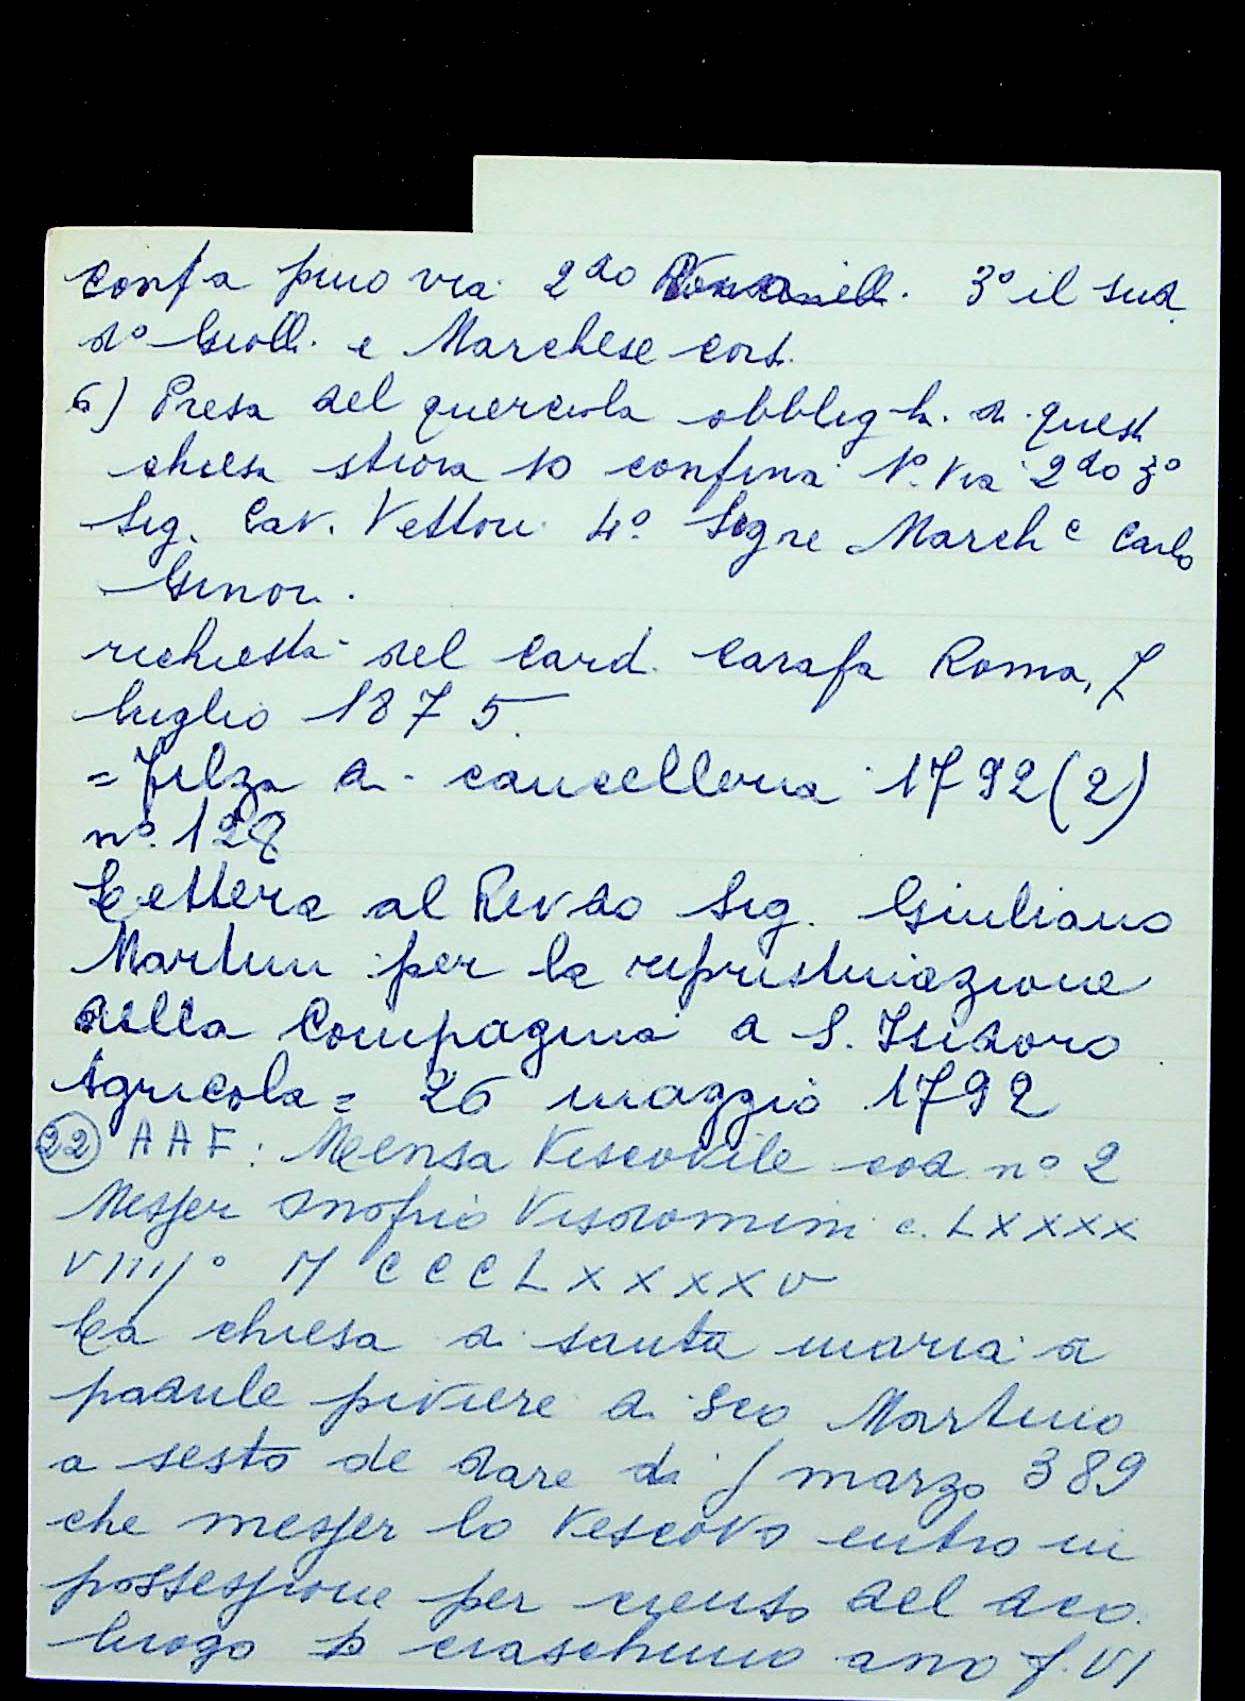 Confa pmo via 2do 3º il sud
dº Groll. e Marchese cors.
6) Presa del querciola obbligh. di quest
chiesa stiora 10 confina 1º. Via 2do 3º
Sig. Cav. Vettori 4º. Sigre Marchᵉ Carlo
Ginori.
richiesta del Card. Carafa Roma, 7
luglio 1875.
= Filza di cancelleria 1792 (2)
nº. 128
Lettera al Revdo Sig. Giuliano
Martini per la ripristinazione
della Compagnia di S. Isidoro
Agricola = 26 maggio 1792
(22) AAF: Mensa Vescovile cod. nº 2
Messer Onofrio Visdomini c. LXXXX
VIIIJº MCCCLXXXXV
La chiesa di santa maria a
padule piviere di Sco Martino
a sesto de dare di J marzo 389
che messer lo Vescovo entro in
possessione per cienso del dco.
luogo p ciaschuno ano f. VI